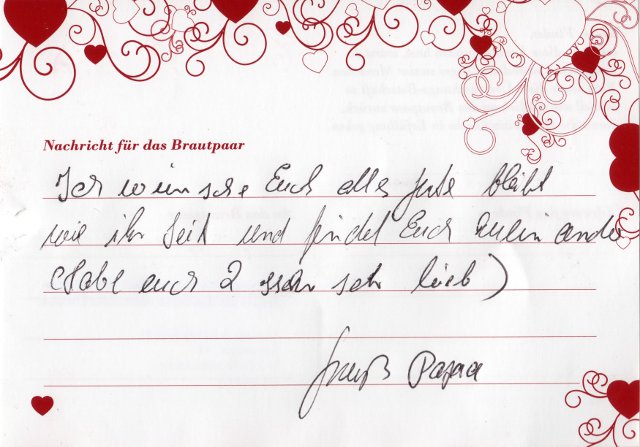 Nachricht für das Brautpaar
Ich wünsche Euch alles gute bleibt
wie ihr seid und findet Euch
(Habe euch 2 sehr lieb)
Gruß Papa